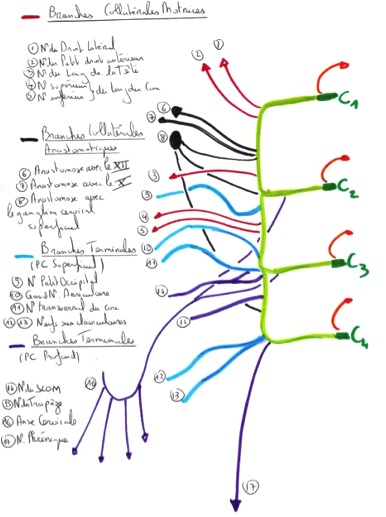 Branches Collatérales Motrices
① N. du Droit Latéral
② N. du Petit droit antérieur
③ N. du Long de la Tête
④ N. supérieur } du Long du Cou
⑤ N. inférieur
Branches Collatérales
Anastomotiques
⑥ Anastomose avec le XII
⑦ Anastomose avec le X
⑧ Anastomose avec
le ganglion cervical
superficiel
Branches Terminales
(PC Superficiel)
⑨ N. Petit Occipital
⑩ Grand N. Auriculaire
⑪ N. transversal du cou
⑫ ⑬ Nerfs supraclaviculaires
Branches Terminales
(PC Profond)
⑭ N. du SCOM
⑮ N. du Trapèze
⑯ Anse Cervicale
⑰ N. Phrénique
② ①
C1
⑥
⑦
⑧
③
C2
⑨
④
⑤
⑩
⑪
C3
⑭
⑮
C4
⑯
⑫
⑬
⑰